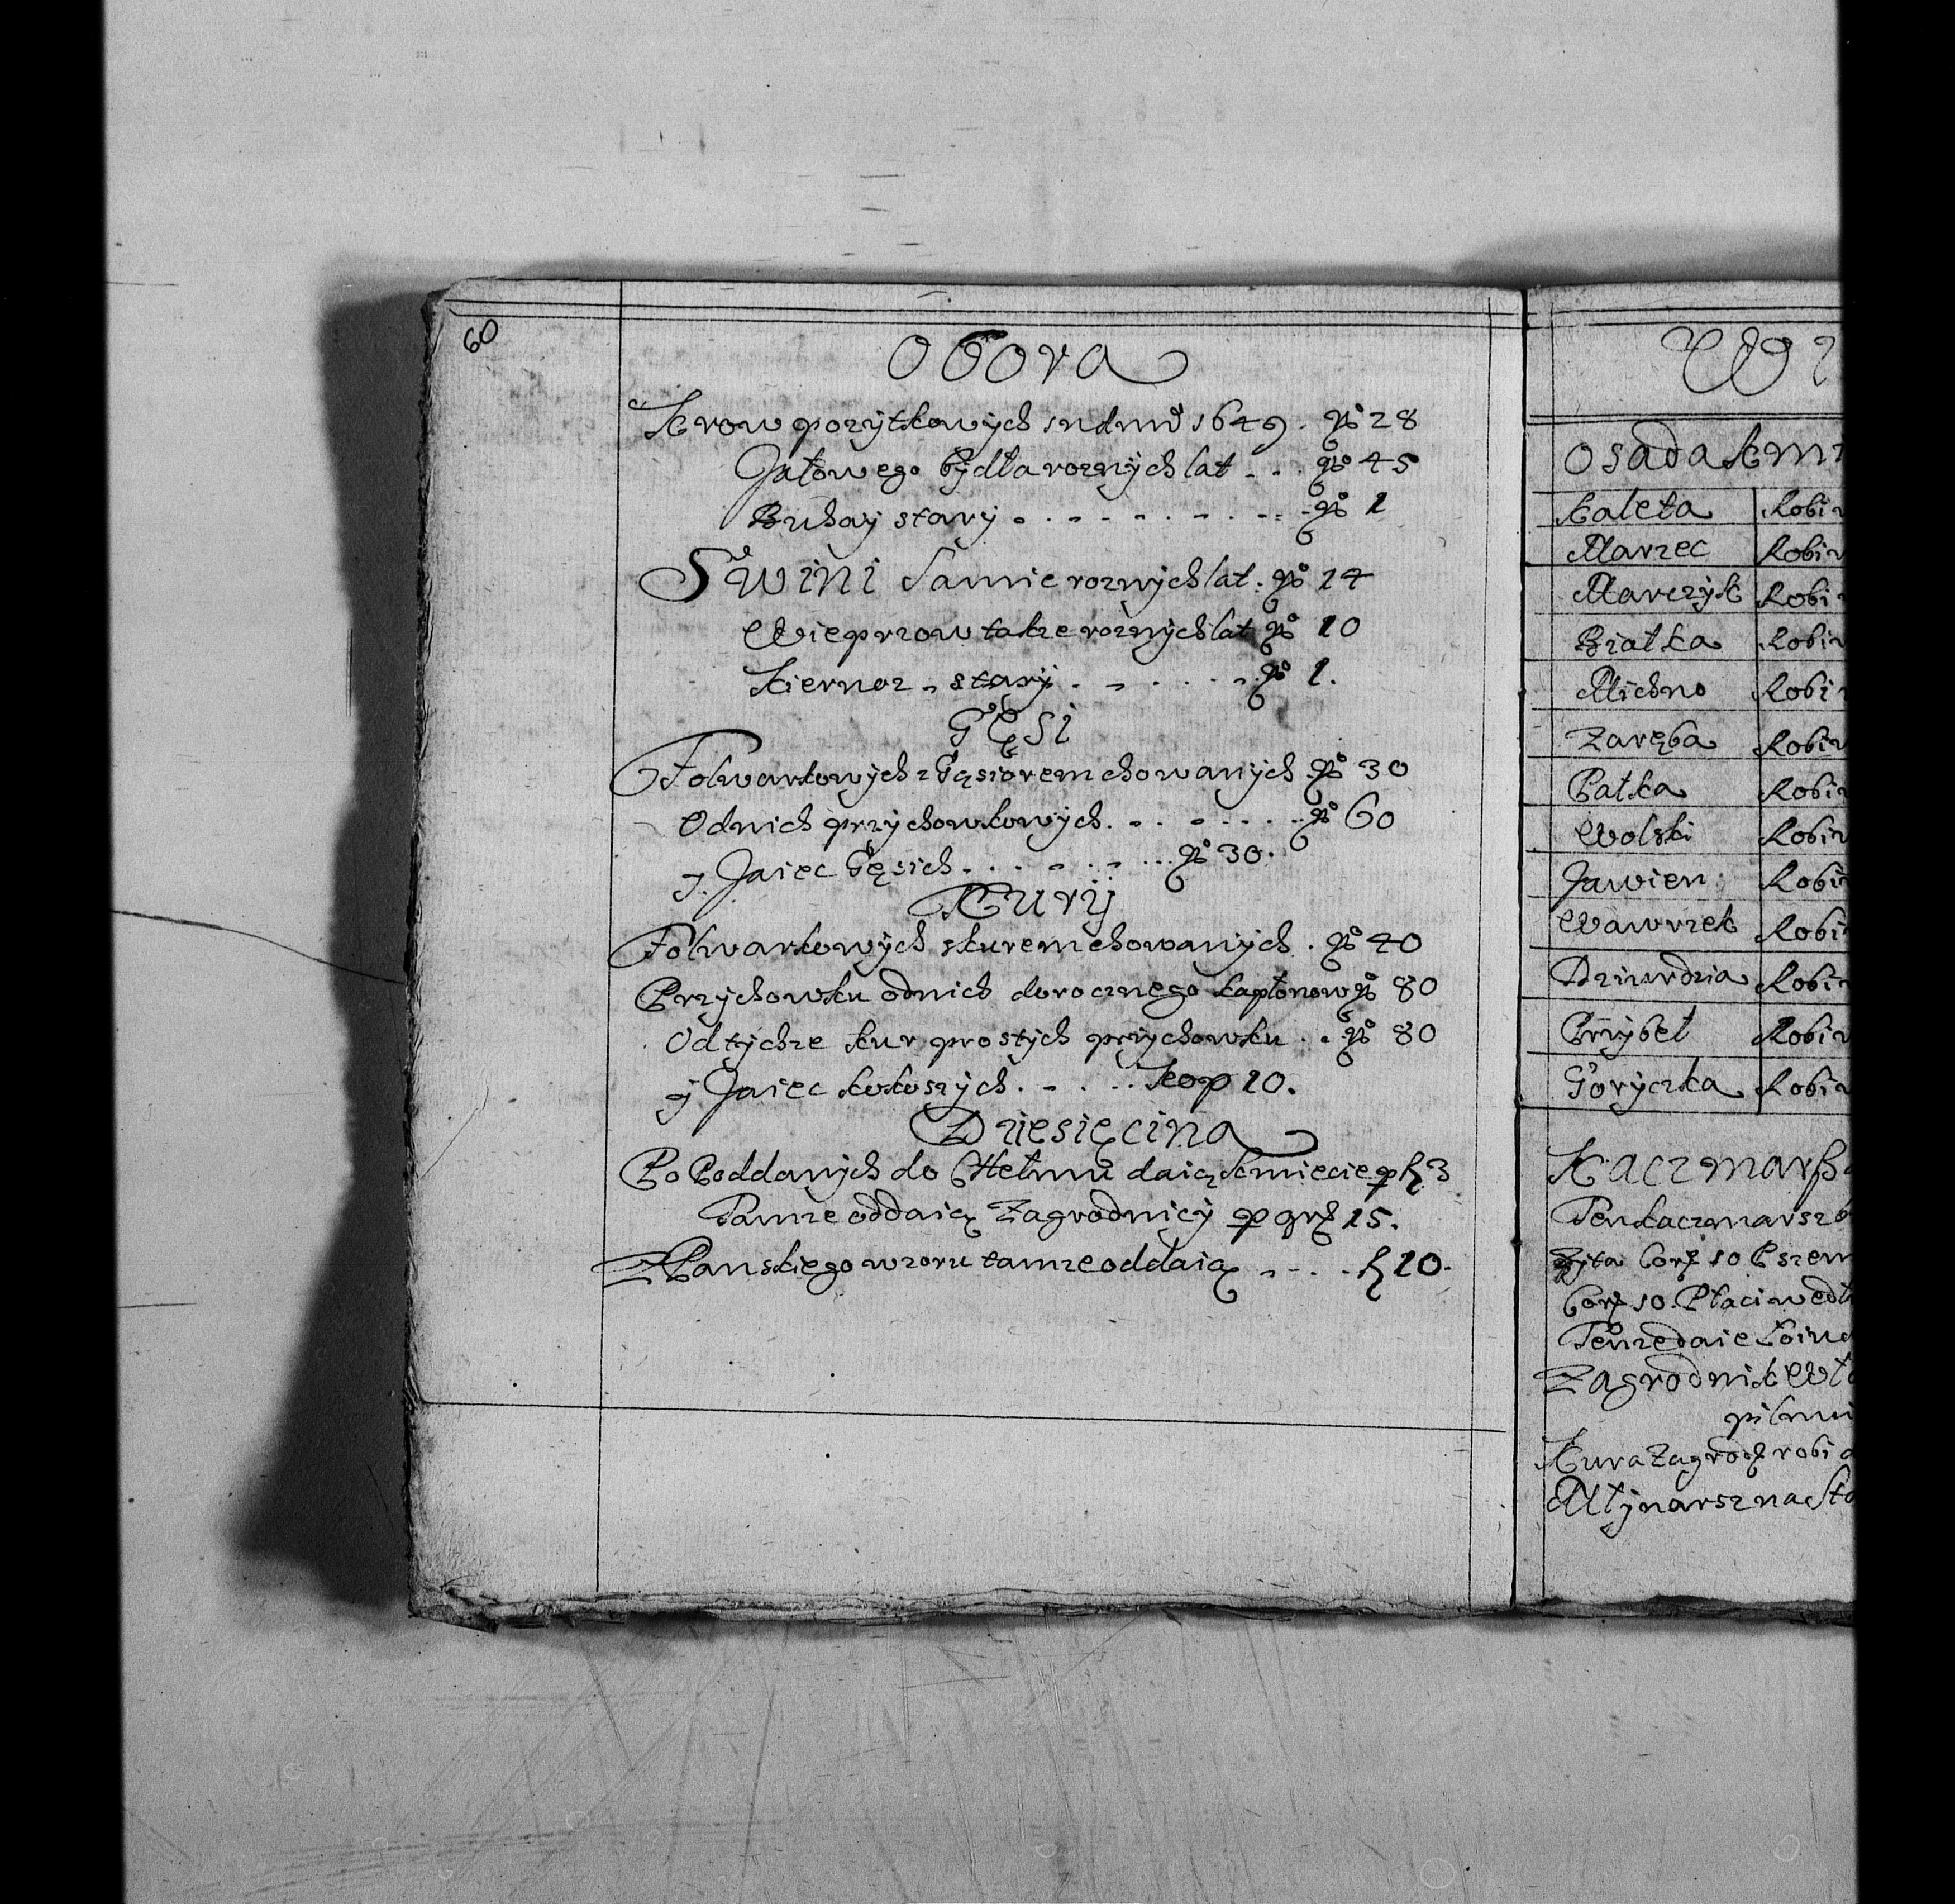 60
Obora
Krow pozytkowych 1649. No 28
Jałowego bydła roznych lat . . . No 45
Buhay stary . . . . . . . . . No 1
Swini Samic roznych lat . No 14
Wieprzow takze roznych lat No 10
Kiernoz . stary . . . . . . . No 1.
Gęsi
Folwarkowych z Gąsiorem chowanych . No 30
Od nich przychowkowych . . . . . . . No 60
y Jaiec Gęsich . . . . . . . No 30.
Kury
Folwarkowych s kurem chowanych . No 40
Przychowku od nich dorocznego kapłonow No 80
Od tychze kur prostych przychowku . . No 80
y Jaiec kokoszych . . . . . kop 10.
Dziesięcina
Po Poddanych do Chełmu daią Kmiecie p 3
Tamze oddaią Zagrodnicy p gr 15.
Z Panskiego tamze oddaią . . . . 10.
W
Osada Km
Kaleta Robi
Marzec Robi
Marczyk Robi
Białka Robi
Michno Robi
Zaręba Robi
Pałka Robi
Wolski Robi
Jawien Robi
Wawrzek Robi
Dziurdzia Robi
Przybeł Robi
Goryczka Robi
Kaczmarz
Ten kaczmarz
Zyta Cor 10 Pszen
Cor 10. Płaci wedł
Tenze daie Łoiu
Zagrodnik Wł
pilnu
Kura Zagrod robi
Młynarsz na Sta